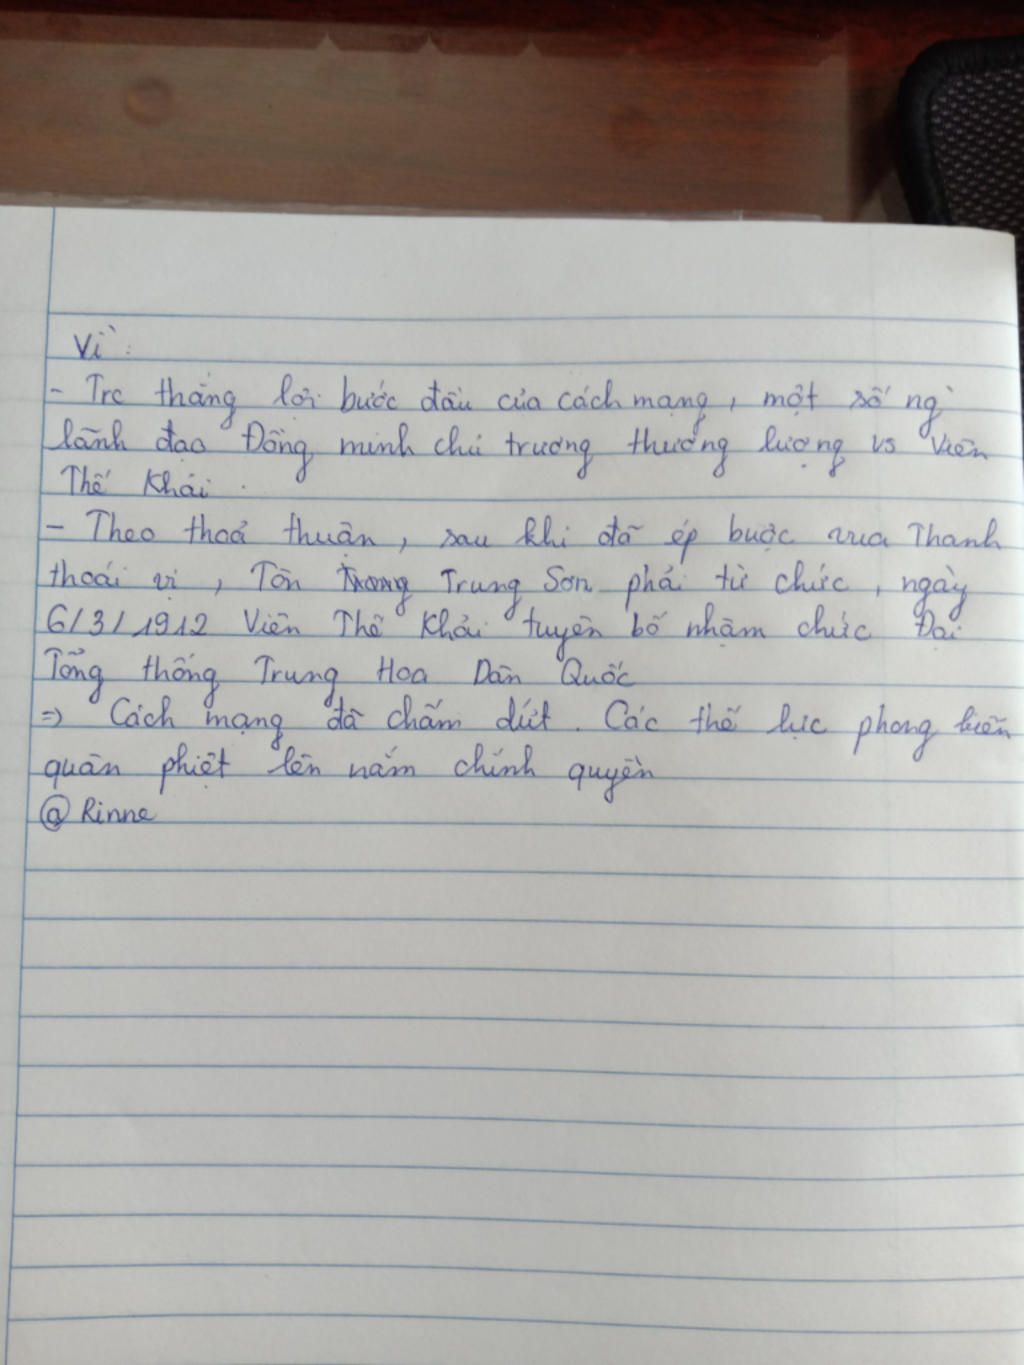 Vì :
- Trc thắng lợi bước đầu của cách mạng, một số ng`
lãnh đạo Đồng minh chủ trương thương lượng vs Viên
Thế Khải.
- Theo thoả thuận, sau khi đã ép buộc vua Thanh
thoái vị, Tôn Trung Sơn phải từ chức, ngày
6/3/1912 Viên Thế Khải tuyên bố nhậm chức Đại
Tổng thống Trung Hoa Dân Quốc
=> Cách mạng đã chấm dứt. Các thế lực phong kiến
quân phiệt lên nắm chính quyền
@ Rinne